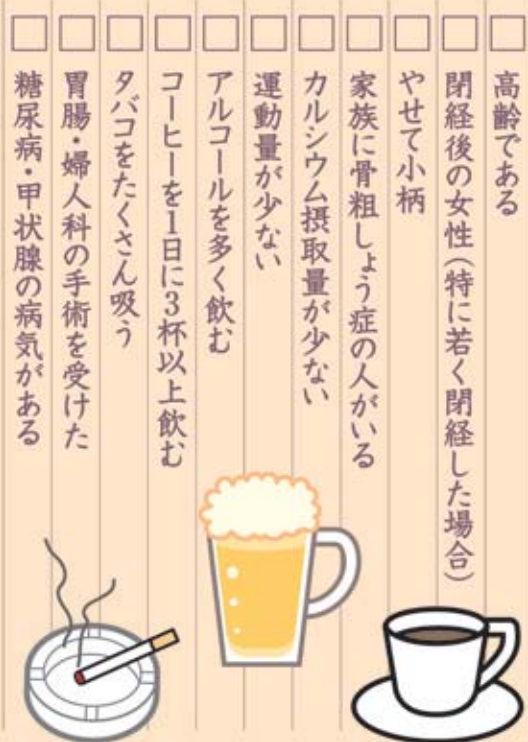 高齢である
閉経後の女性(特に若く閉経した場合)
やせて小柄
家族に骨粗しょう症の人がいる
カルシウム摂取量が少ない
運動量が少ない
アルコールを多く飲む
コーヒーを1日に3杯以上飲む
タバコをたくさん吸う
胃腸・婦人科の手術を受けた
糖尿病・甲状腺の病気がある